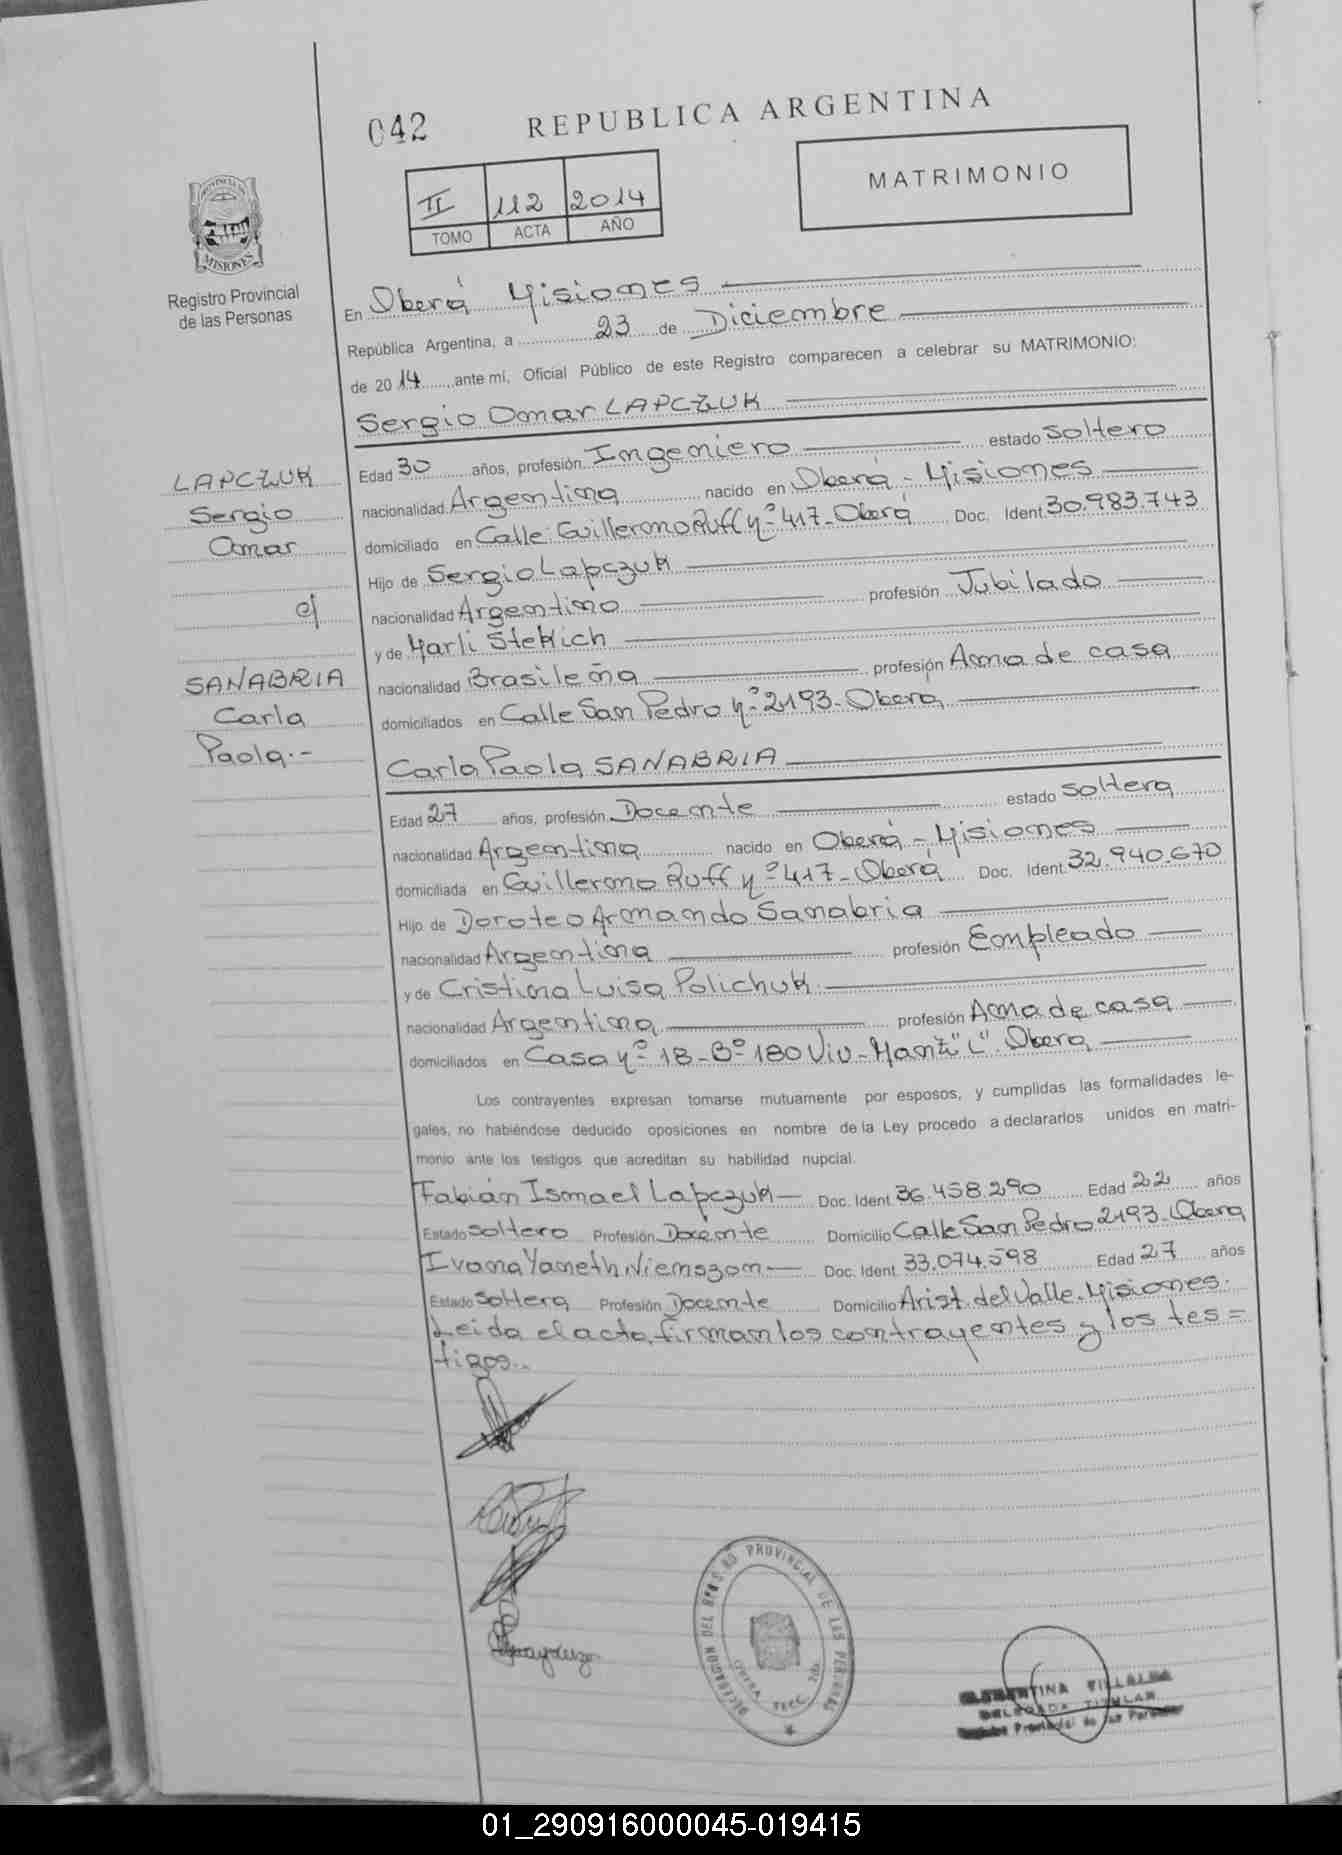 042 REPUBLICA ARGENTINA
MATRIMONIO
II 112 2014
TOMO ACTA AÑO
PROVINCIA DE
MISIONES
Registro Provincial
de las Personas
En Oberá Misiones
República Argentina, a 23 de Diciembre
de 2014 ante mí, Oficial Público de este Registro comparecen a celebrar su MATRIMONIO:
Sergio Omar LAPCZUK
LAPCZUK
Sergio
Omar
c/
SANABRIA
Carla
Paola.-
Edad 30 años, profesión Ingeniero estado Soltero
nacionalidad Argentina nacido en Oberá - Misiones
domiciliado en Calle Guillermo Ruff Nº 417-Oberá Doc. Ident. 30.983.743
Hijo de Sergio Lapczuk
nacionalidad Argentino profesión Jubilado
y de Marli Steklich
nacionalidad Brasileña profesión Ama de casa
domiciliados en Calle San Pedro Nº 2193-Obera
Carla Paola SANABRIA
Edad 27 años, profesión Docente estado Soltera
nacionalidad Argentina nacido en Oberá - Misiones
domiciliada en Guillermo Ruff Nº 417-Oberá Doc. Ident. 32.940.670
Hijo de Doroteo Armando Sanabria
nacionalidad Argentina profesión Empleado
y de Cristina Luisa Polichuk
nacionalidad Argentina profesión Ama de casa
domiciliados en Casa Nº 18-Bº 180 Viv-Manz "L" Obera
Los contrayentes expresan tomarse mutuamente por esposos, y cumplidas las formalidades le-
gales, no habiéndose deducido oposiciones en nombre de la Ley procedo a declararlos unidos en matri-
monio ante los testigos que acreditan su habilidad nupcial.
Fabián Ismael Lapczuk Doc. Ident. 36.458.290 Edad 22 años
Estado Soltero Profesión Docente Domicilio Calle San Pedro 2193-Obera
Ivana Yaneth Niemszon Doc. Ident. 33.074.598 Edad 27 años
Estado Soltera Profesión Docente Domicilio Arist. del Valle. Misiones.
Leida el acta, firman los contrayentes y los tes=
tigos..
PROVINCIAL DE LAS PERSONAS
VILLALBA
DELEGADA TITULAR
Registro Provincial de las Personas
01_290916000045-019415